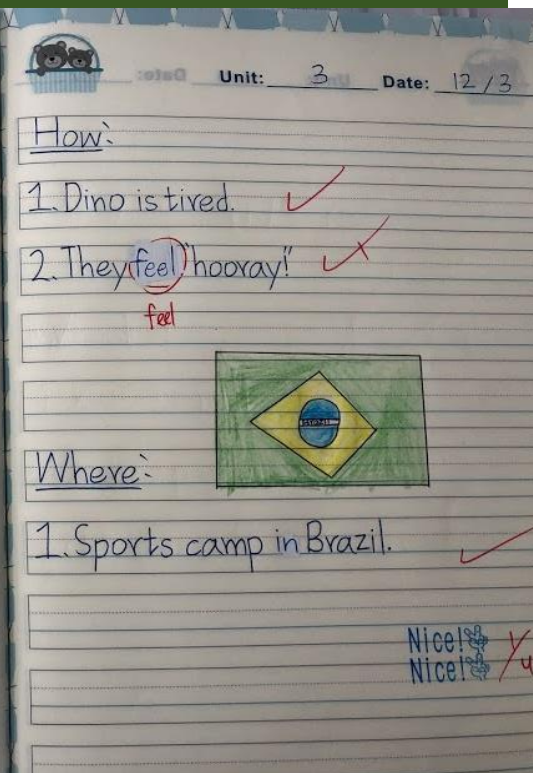 Unit: 3 Date: 12/3
How:
1. Dino is tired.
2. They feel "hooray!"
feel
Where:
1. Sports camp in Brazil.
Nice!
Nice!